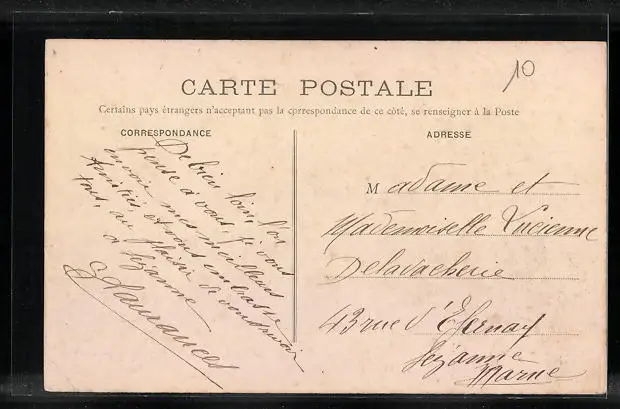 10
CARTE POSTALE
Certains pays étrangers n'acceptant pas la correspondance de ce côté, se renseigner à la Poste
CORRESPONDANCE
De bien loin l'on
pense à vous, je vous
envoie mes meilleurs
amitiés, et vous embrasse
tous, au plaisir de vous revoir
à Sézanne
ADRESSE
Madame et
Mademoiselle Lucienne
Delavacherie
43 rue d'Epernay
Sézanne
Marne